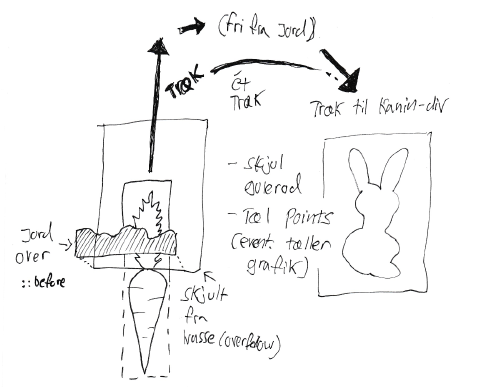 (fri fra jord)
Træk
ét
Træk
Træk til Kanin-div
- Skjul
Gulerod
- Tæl Points
(event. tæller
grafik)
Jord
over
::before
Skjult
fra
kasse (overflow)